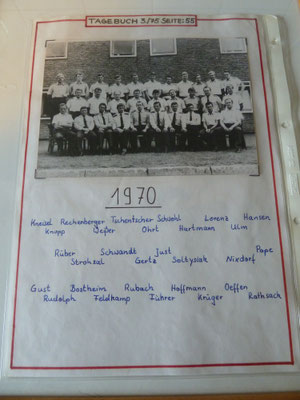 TAGEBUCH 3/75 SEITE: 55
1970
Kneisel Rechenberger Tschentscher Schwohl Lorenz Hansen
Knopp Deßer Ohrt Hartmann Ulm
Rüber Schwandt Just Pape
Strohsal Gertz Soltysiak Nixdorf
Gust Bostheim Rubach Hoffmann Oeffen
Rudolph Feldkamp Führer Krüger Rathsach